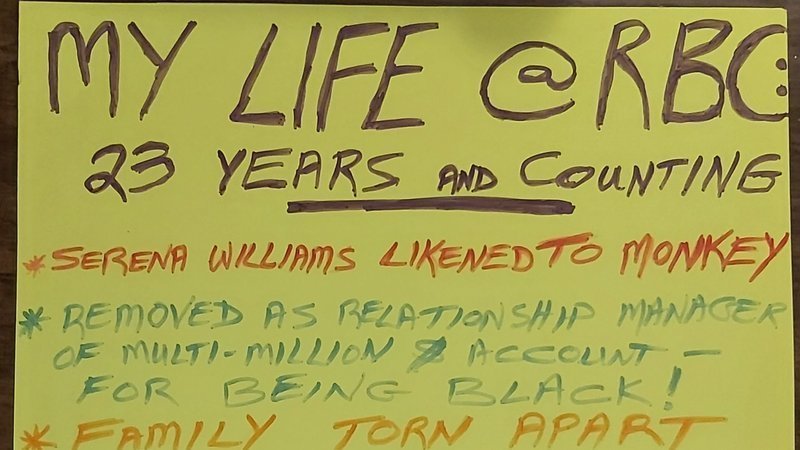 MY LIFE @ RBC:
23 YEARS AND COUNTING
* SERENA WILLIAMS LIKENED TO MONKEY
* REMOVED AS RELATIONSHIP MANAGER
OF MULTI-MILLION $ ACCOUNT -
FOR BEING BLACK!
* FAMILY TORN APART